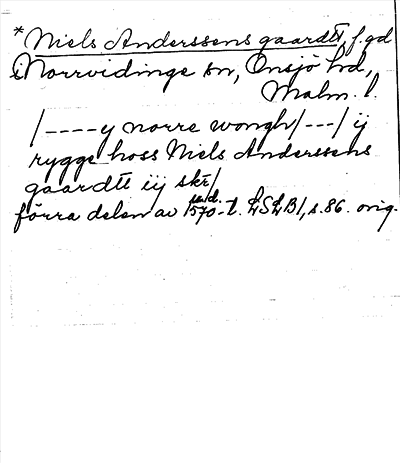 *Niels Anderssens gaardtt f.gd
i Norrvidinge sn, Onsjö hd,
Malm. l.
/----y norre wongh/---/ ij
rygge hoss Niels Anderssens
gaardtt iij skr/
förra delen av 1570-t. LSLB1, s.86. orig.